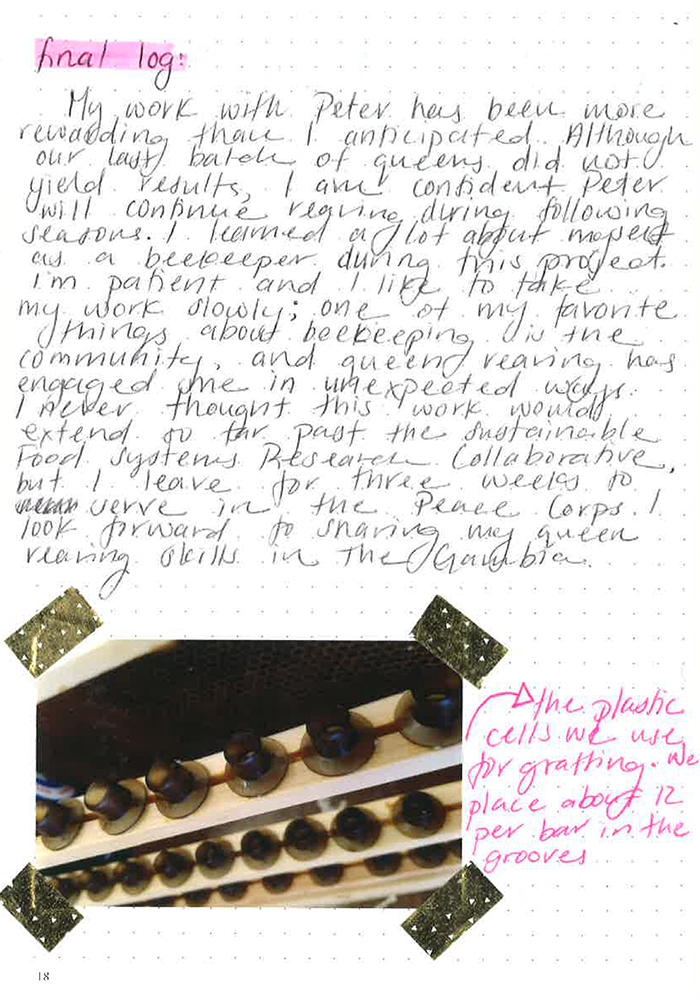 final log:
My work with Peter has been more
rewarding than I anticipated. Although
our last batch of queens did not
yield results, I am confident Peter
will continue rearing during following
seasons. I learned a lot about myself
as a beekeeper during this project.
I'm patient and I like to take
my work slowly; one of my favorite
things about beekeeping is the
community, and queen rearing has
engaged me in unexpected ways.
I never thought this work would
extend so far past the Sustainable
Food Systems Research Collaborative,
but I leave for three weeks to
serve in the Peace Corps. I
look forward to sharing my queen
rearing skills in The Gambia.
the plastic
cells we use
for grafting. We
place about 12
per bar in the
grooves
18